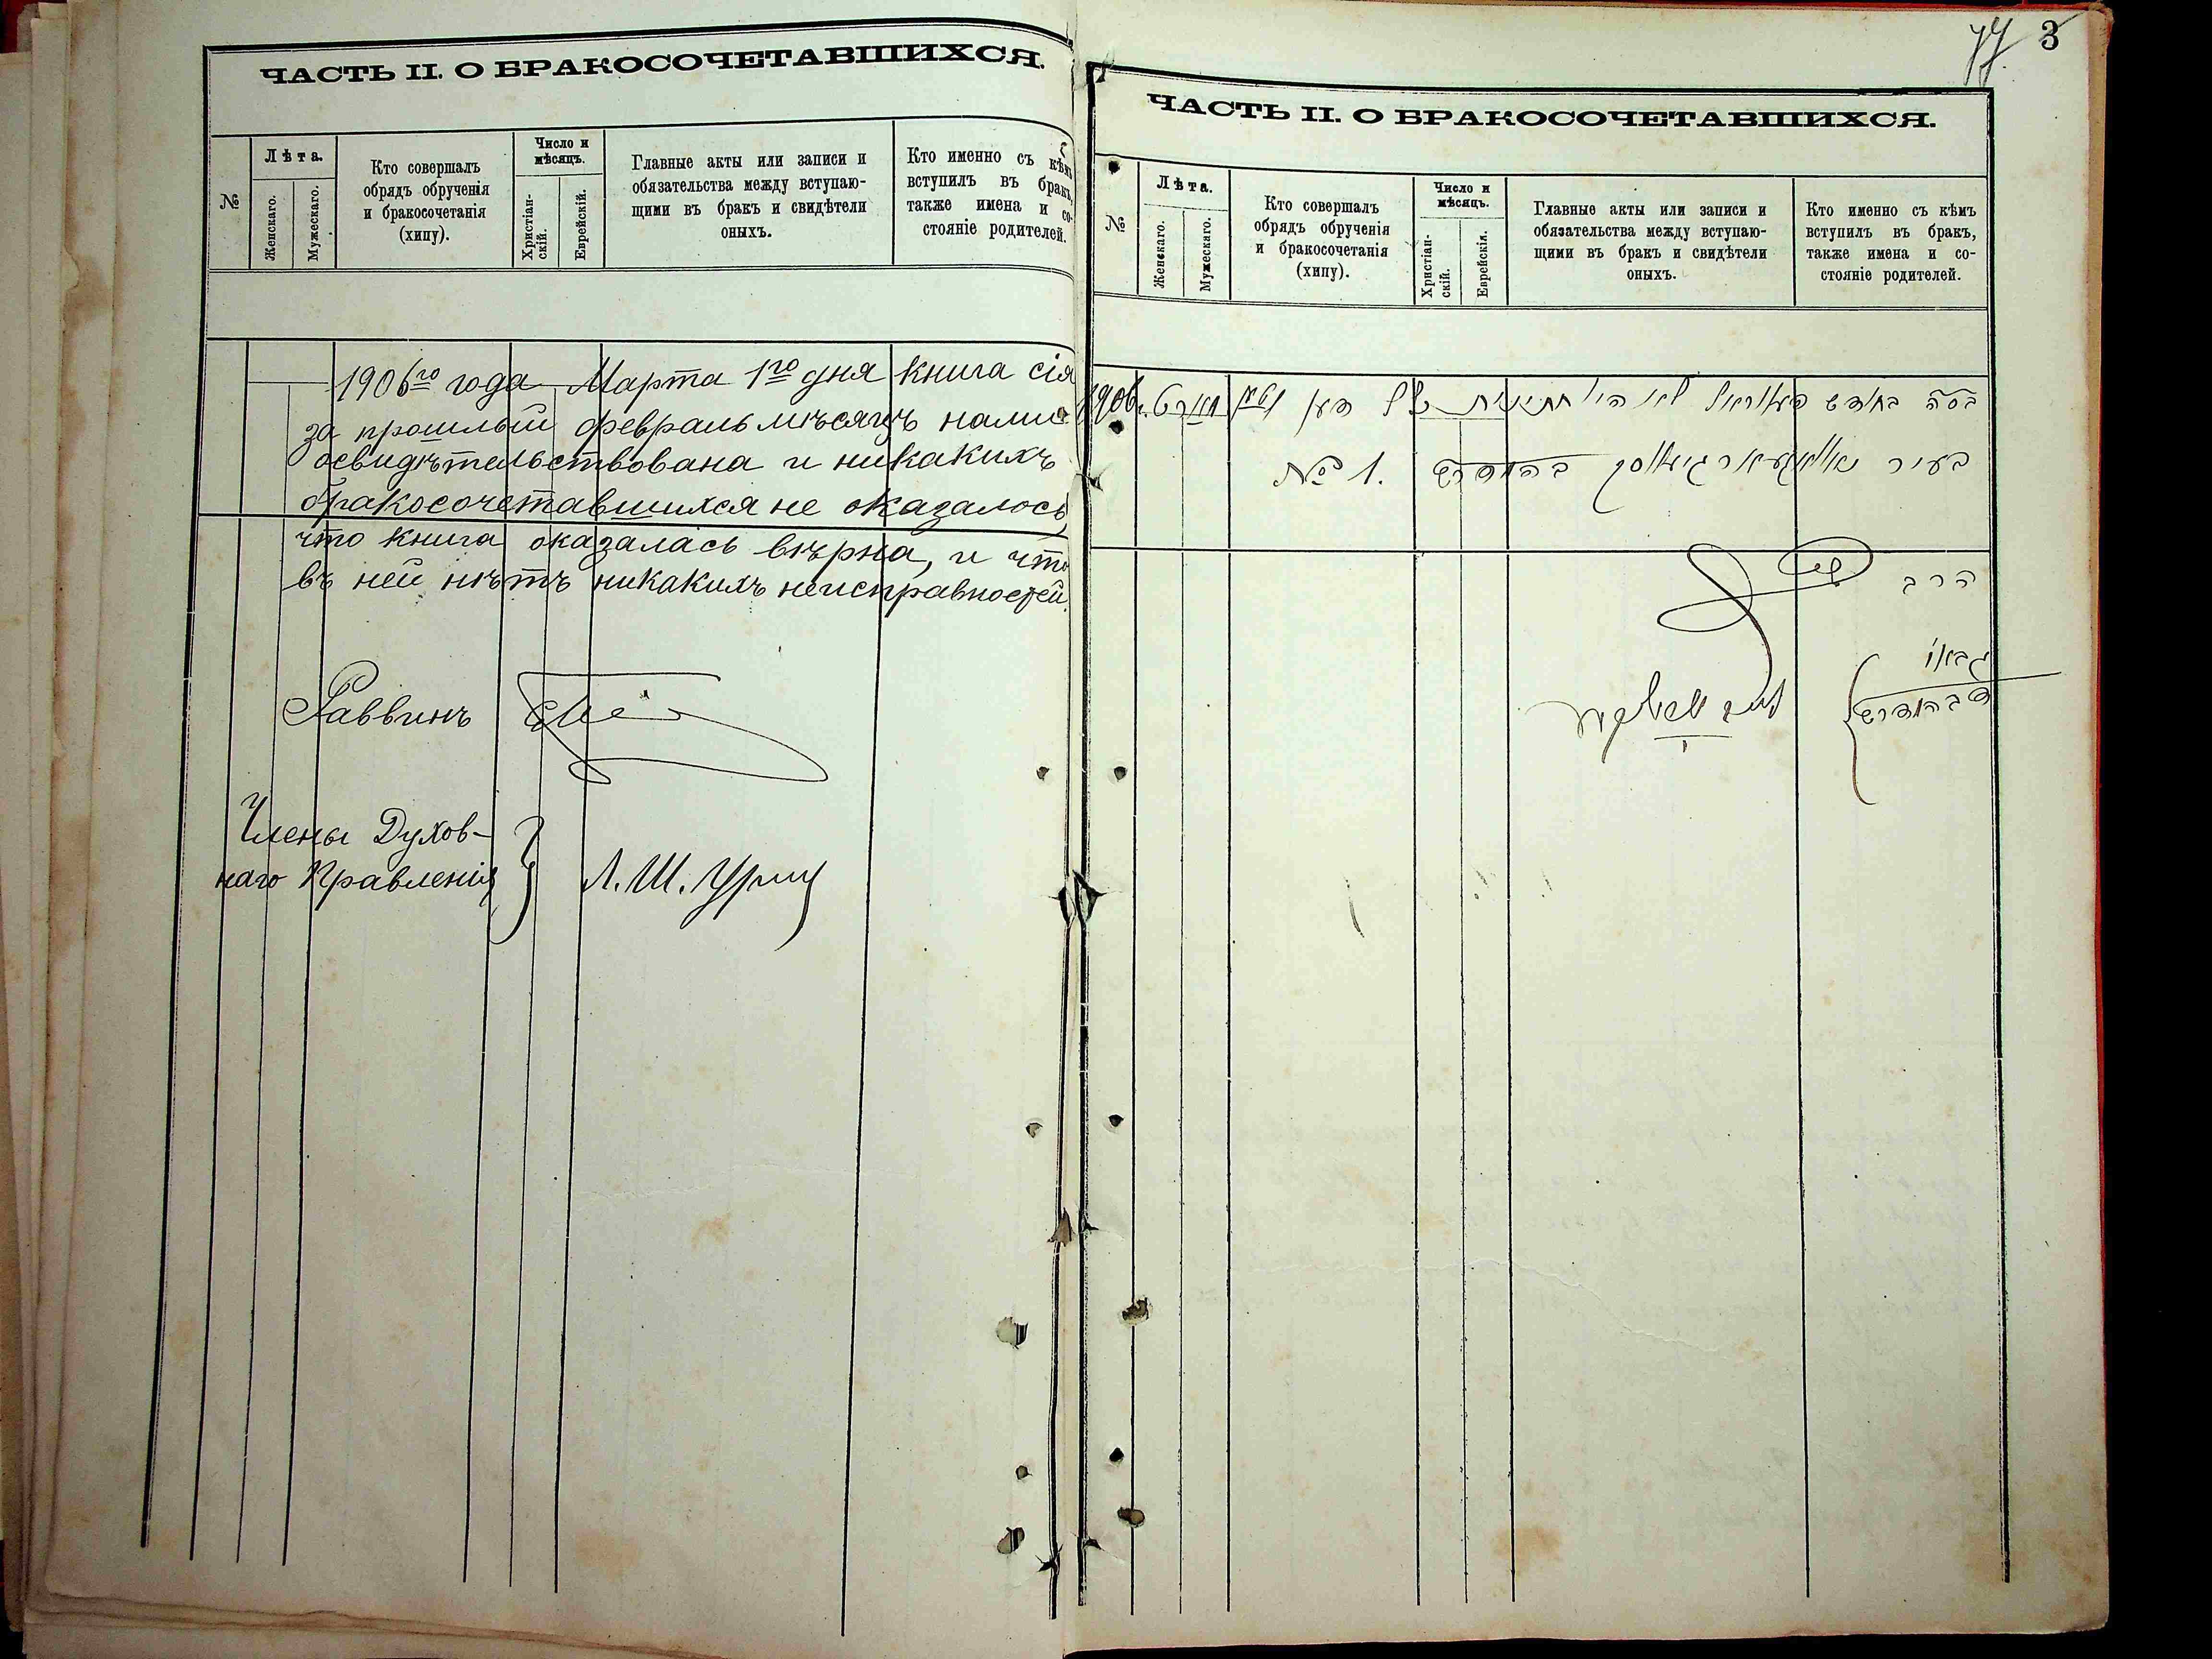 ЧАСТЬ II. О БРАКОСОЧЕТАВШИХСЯ.
№
Лѣта.
Женскаго.
Мужескаго.
Кто совершалъ
обрядъ обрученія
и бракосочетанія
(хипу).
Число и
мѣсяцъ.
Христіан-
скій.
Еврейскій.
Главные акты или записи и
обязательства между вступаю-
щими въ бракъ и свидѣтели
оныхъ.
Кто именно съ кѣмъ
вступилъ въ бракъ,
также имена и со-
стояніе родителей.
1906го года Марта 1го дня книга сія
за прошлый февраль мѣсяцъ нами
освидѣтельствована и никакихъ
бракосочетавшихся не оказалось,
что книга оказалась вѣрна, и что
въ ней нѣтъ никакихъ неисправностей.
Раввинъ
Члены Духов-
наго Правленія
Л. Ш.
3
ЧАСТЬ II. О БРАКОСОЧЕТАВШИХСЯ.
№
Лѣта.
Женскаго.
Мужескаго.
Кто совершалъ
обрядъ обрученія
и бракосочетанія
(хипу).
Число и
мѣсяцъ.
Христіан-
скій.
Еврейскія.
Главные акты или записи и
обязательства между вступаю-
щими въ бракъ и свидѣтели
оныхъ.
Кто именно съ кѣмъ
вступилъ въ бракъ,
также имена и со-
стояніе родителей.
בחודש לא היו דען 1טען מארט 1906
בעיר בהמדרש № 1.
הרב
גבאי
דבהמדרש